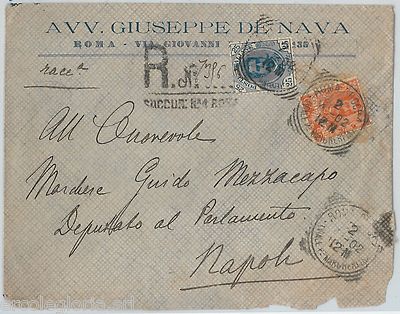 AVV. GIUSEPPE DE NAVA
ROMA - VIA GIOVANNI
racc.a
R.
N. 7396
SUCCUR. N.4 ROMA
All' Onorevole
Marchese Guido Mezzacapo
Deputato al Parlamento
Napoli
ROMA
2
02
12M
2
02
12M